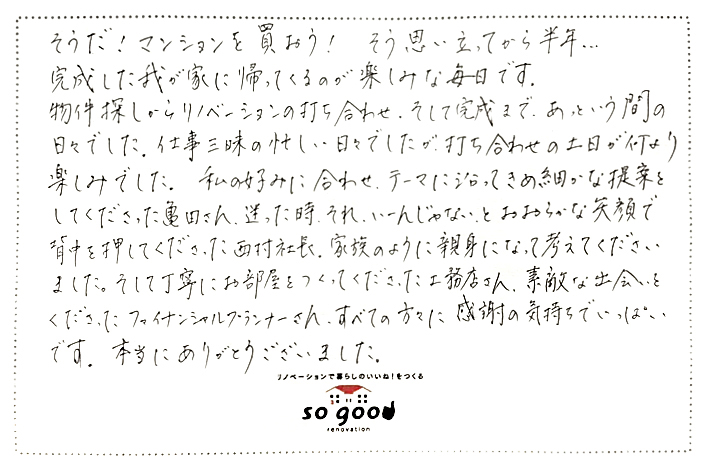 そうだ！マンションを買おう！ そう思い立ってから半年…
完成した我が家に帰ってくるのが楽しみな毎日です。
物件探しからリノベーションの打ち合わせ、そして完成まで、あっという間の
日々でした。仕事三昧の忙しい日々でしたが、打ち合わせの土日が何より
楽しみでした。 私の好みに合わせ、テーマに沿ってきめ細かな提案を
してくださった亀田さん、迷った時、それ、いーんじゃない、とおおらかな笑顔で
背中を押してくださった西村社長、家族のように親身になって考えてください
ました。そして丁寧にお部屋をつくってくださった工務店さん、素敵な出会いを
くださったファイナンシャルプランナーさん、すべての方々に感謝の気持ちでいっぱい
です。本当にありがとうございました。
リノベーションで暮らしのいいね！をつくる
so good
renovation